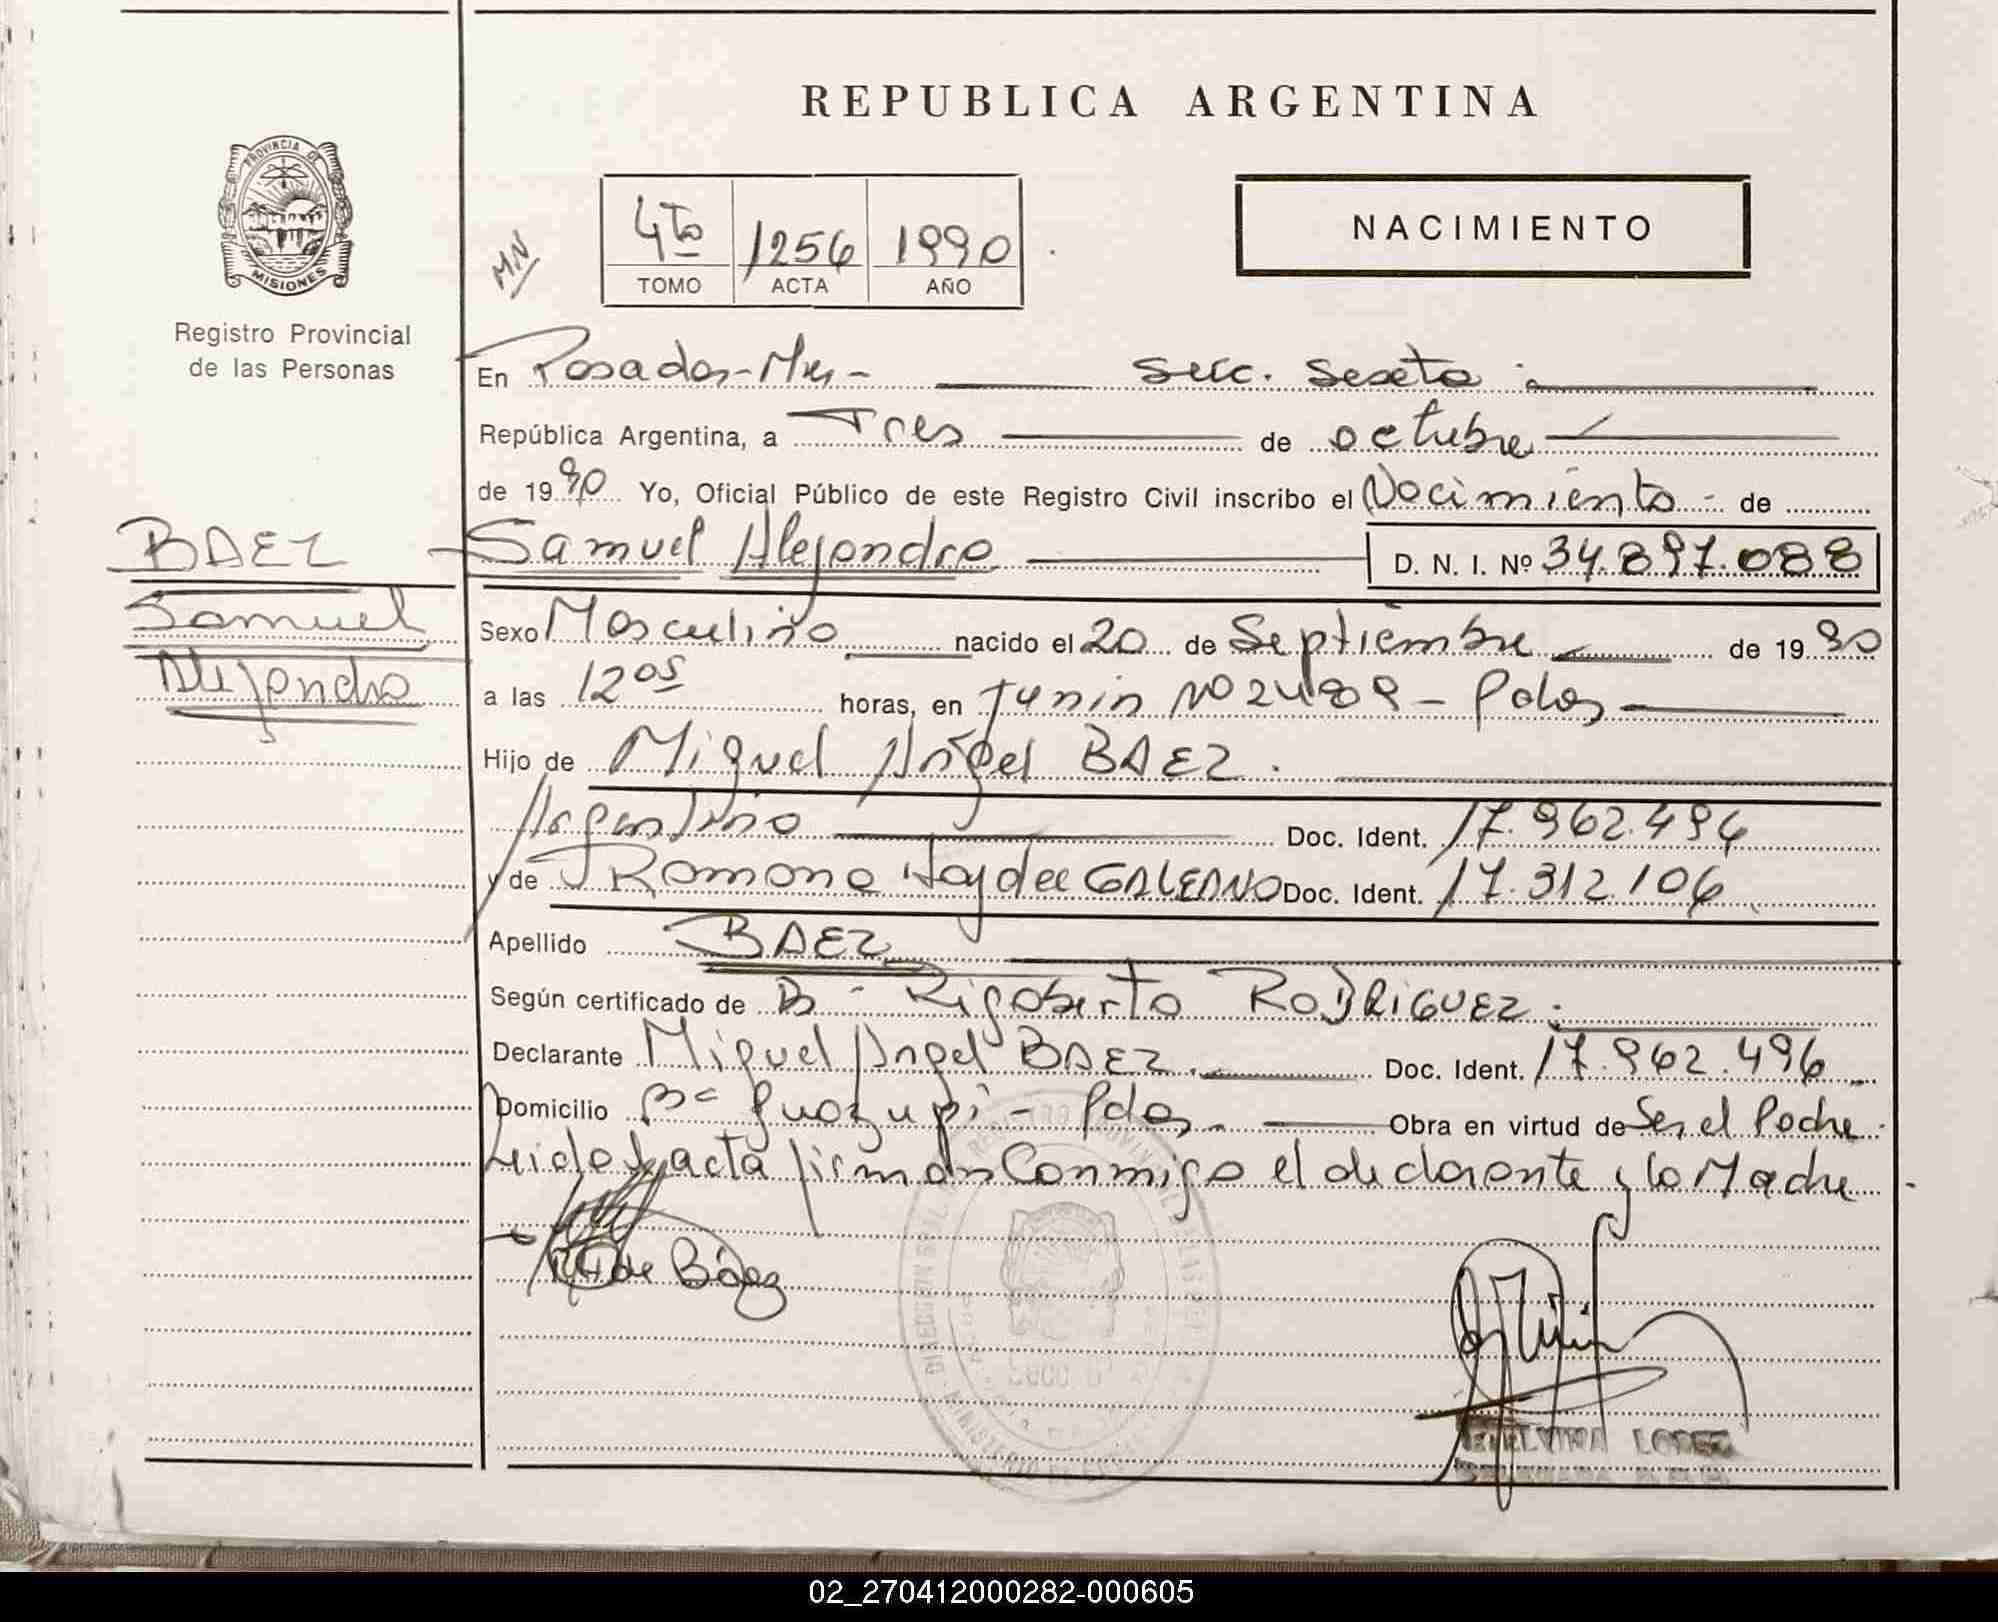 REPUBLICA ARGENTINA
PROVINCIA DE
MISIONES
Registro Provincial
de las Personas
MN
4to 1256 1990
TOMO ACTA AÑO
NACIMIENTO
En Posadas-Mnes- Secc. Sexta
República Argentina, a Tres de octubre
de 1990 Yo, Oficial Público de este Registro Civil inscribo el Nacimiento - de
BAEZ
Samuel
Alejandro
Samuel Alejandro D. N. I. Nº 34.897.088
Sexo Masculino nacido el 20 de Septiembre de 1990
a las 12 05 horas, en Junin Nº 2489 - Pdas
Hijo de Miguel Angel BAEZ.
Argentino Doc. Ident. 17.962.496
y de Ramona Haydee GALEANO Doc. Ident. 17.312.106
Apellido BAEZ
Según certificado de Rigoberto RODRIGUEZ.
Declarante Miguel Angel BAEZ. Doc. Ident. 17.962.496
Domicilio Bº Guazupi - Pdas. Obra en virtud de Ser el Padre.
Leida el acta firman Conmigo el declarante y la Madre.
de Báez
ELVIRA LOPEZ
02_270412000282-000605